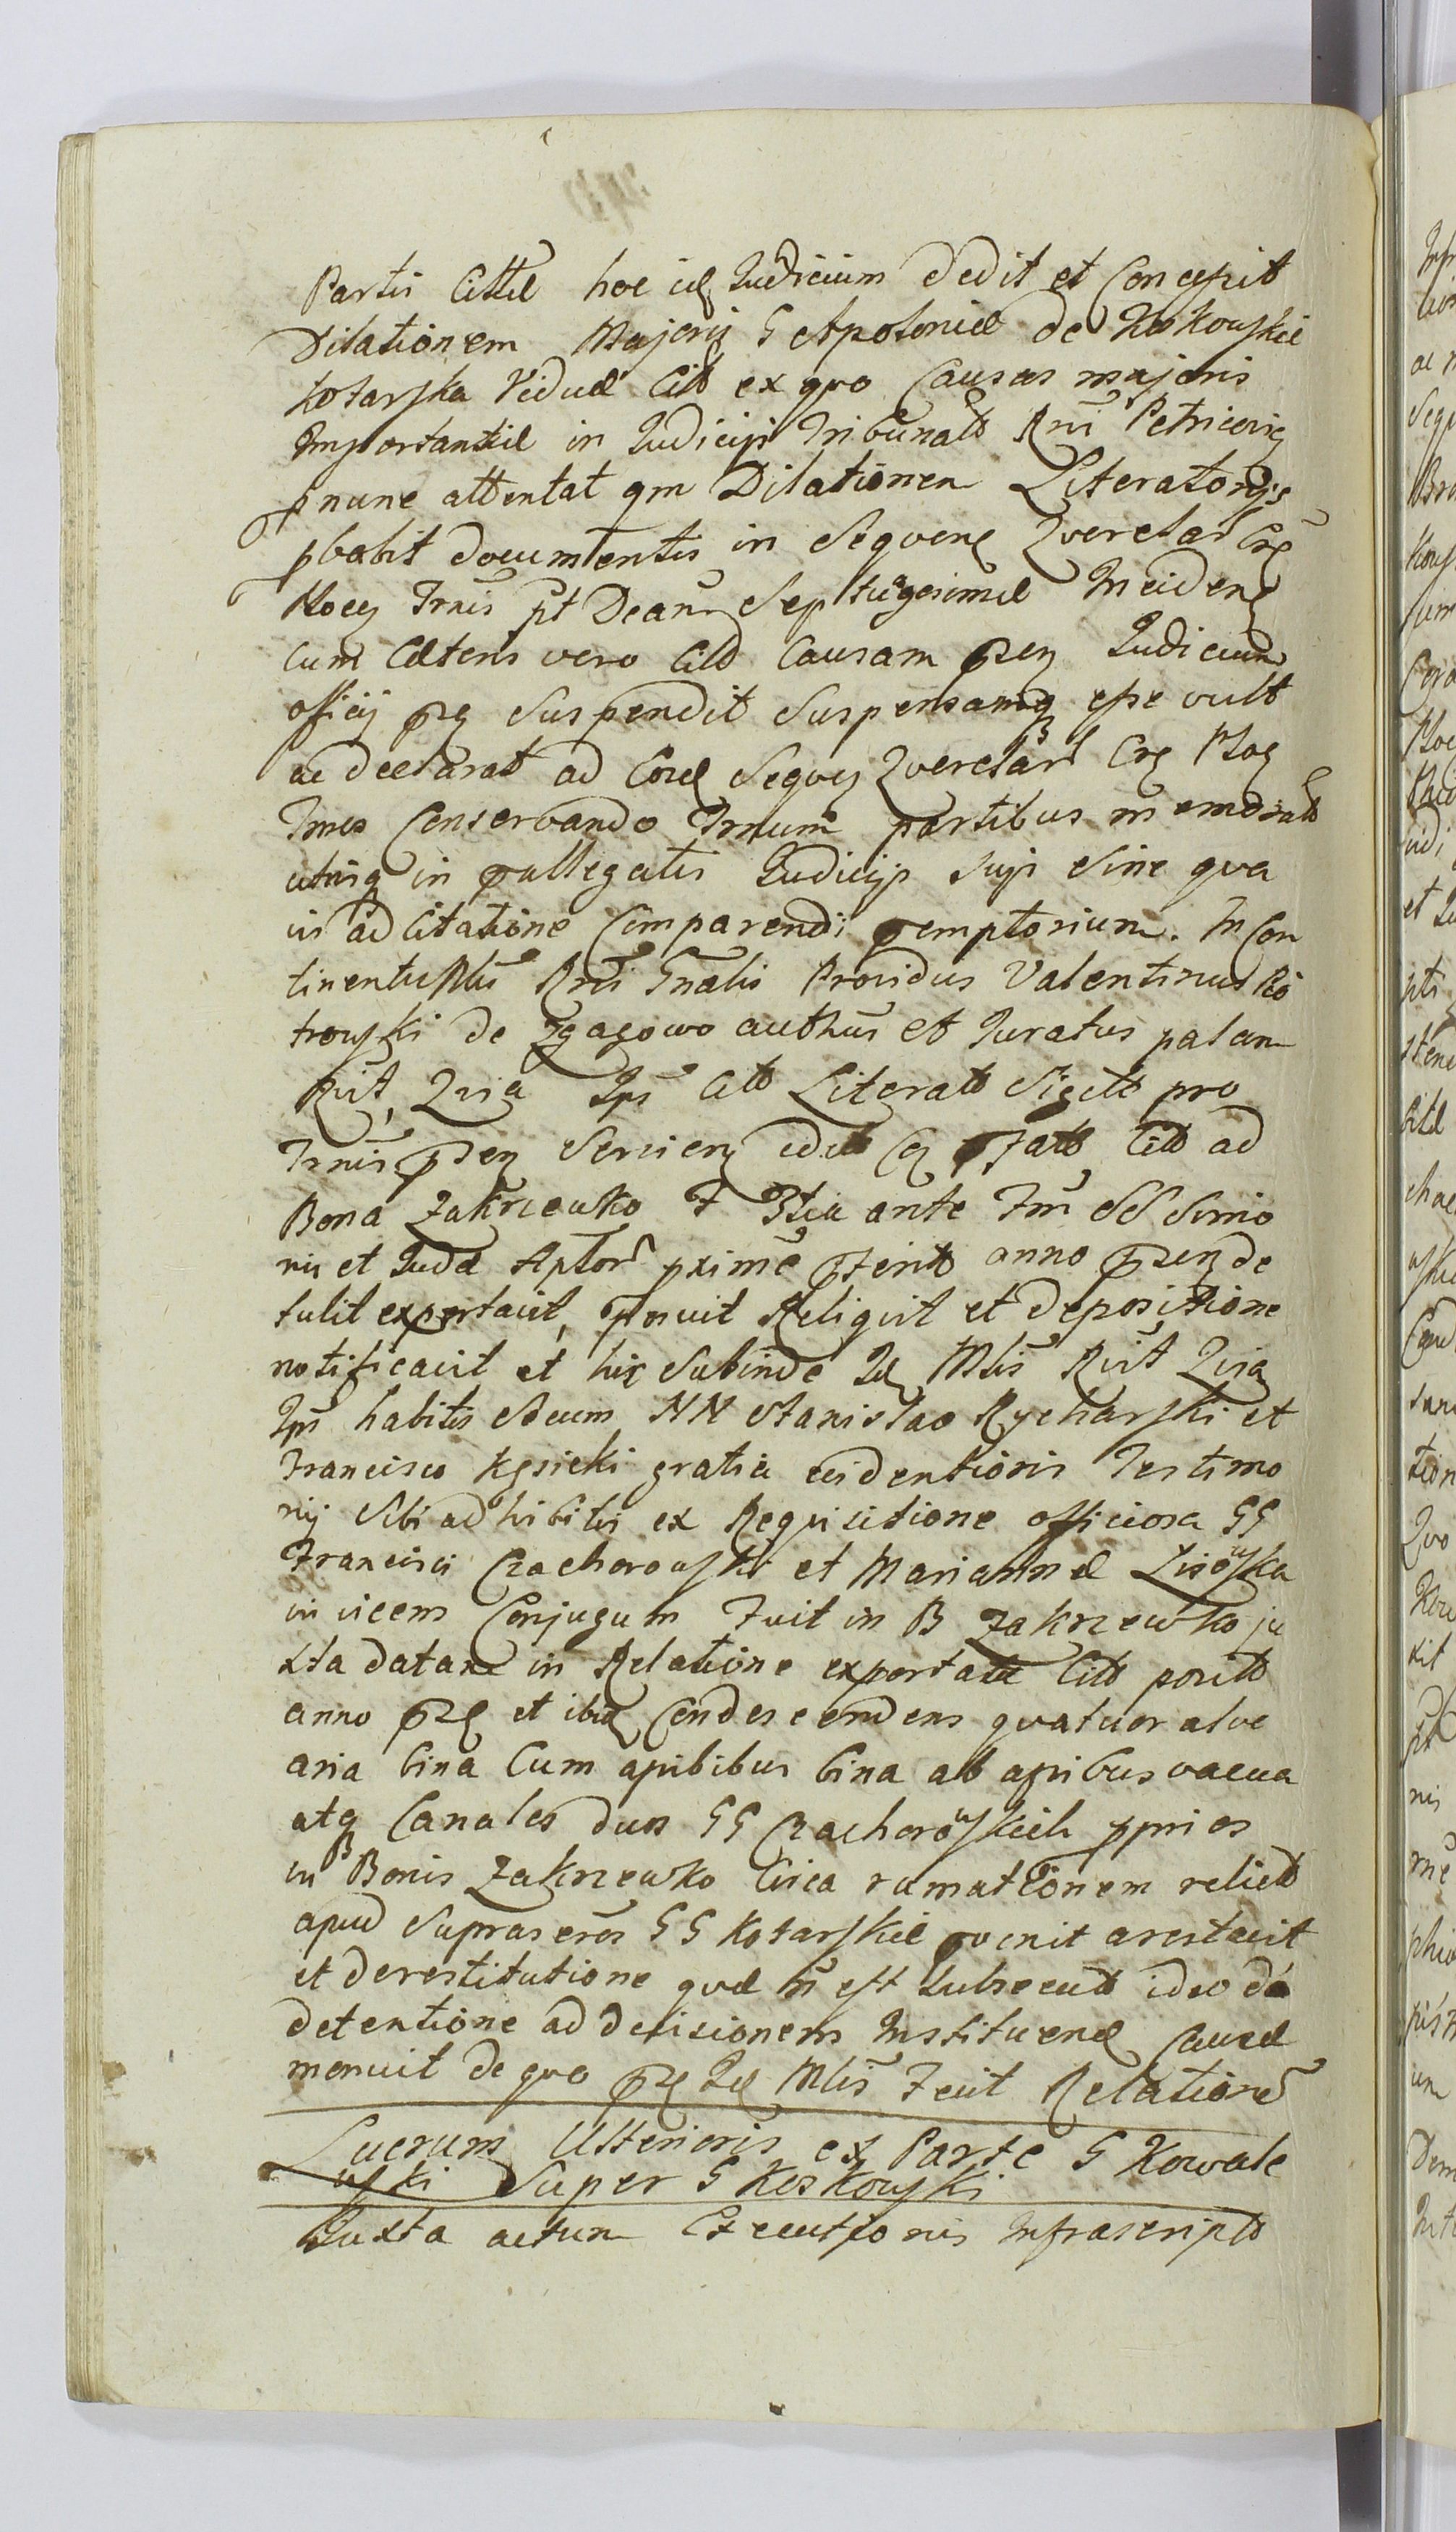 Partis Cittæ hoc idq Judicium dedit et Concepit
Dilationem Majoris G Apoloniæ de Koskowskie
Kotarska Viduæ Citt ex quo Causas majoris
Importantiæ in Judicijs Tribunalt Rni Petricovien
pnunc attentat qm Dilationem Literatorijs
pbabit documentis in Sequen Querelar Crq
Ploceq Trnis pt Deanr Septuagesimæ Inciden
Cum Cæteris vero Citt Causam pnq Judicium
officij pnq Suspendit Suspensamq esse vult
ac declarat ad Coræ Sequq Querelar Crq Plocq
Trnos Conservando Trnum partibus in emdiatt
utrisq in pallegatis Judicijs Sujs Sine qva
vis ad Citatione Comparendi pemptorium. In Con
tinenti Mlis Rni Gnalis Providus Valentinus Pio
trowski de Zgagowo authus et Juratus palam
Rvit, Quia Ips Citt Literatt Sigilt pro
Trnis pnq Servien idib Cq ptatt Citt ad
Bona Zakrzewko F 3tia ante Fm SS Simo
nis et Judæ Aptor pxime pterit anno pnq de
tulit exportavit, posuit Reliquit et depositione
notificavit et his Subinde Id Mlis Rvit Quia
Ips habitis Secum NN Stanislao Rycharski et
Francisco Kęsicki gratia evidentioris Testimo
nij Sibi adhibitis ex Requisitione officiosa GG
Francisci Czachorowski et Mariannæ Lisowska
in vicem Conjugum Fuit in B Zakrzewko ju
xta datam in Relatione exportatæ Citt posit
anno pnq et ibiq Condescendens quatuor alve
aria bina Cum apibibus bina ab apibus vacua
atq Canales duos GG Czachorowskich pprios
in Bonis Zakrzewko Circa rumationem relict
apud Suprascros GG Kotarskie pvenit arestavit
et de restitutione quæ n est Subsecut ideo de
detentione ad decisionem Instituenæ Causæ
monuit de quo pnq Id Mlis Fecit Relatione
Lucrum Ulterioris ex Parte G Kowale
wski Super G Koskowski
Juxta actum Executionis Infrascript